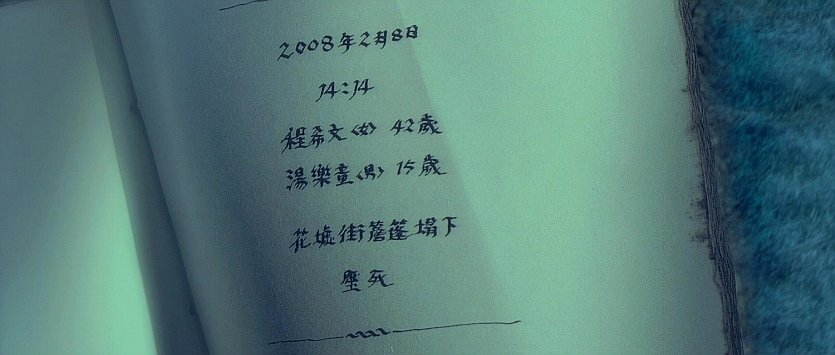 2008年2月8日
14:14
程希文〈女〉 42歲
湯樂童〈男〉 15歲
花墟街簷篷塌下
壓死